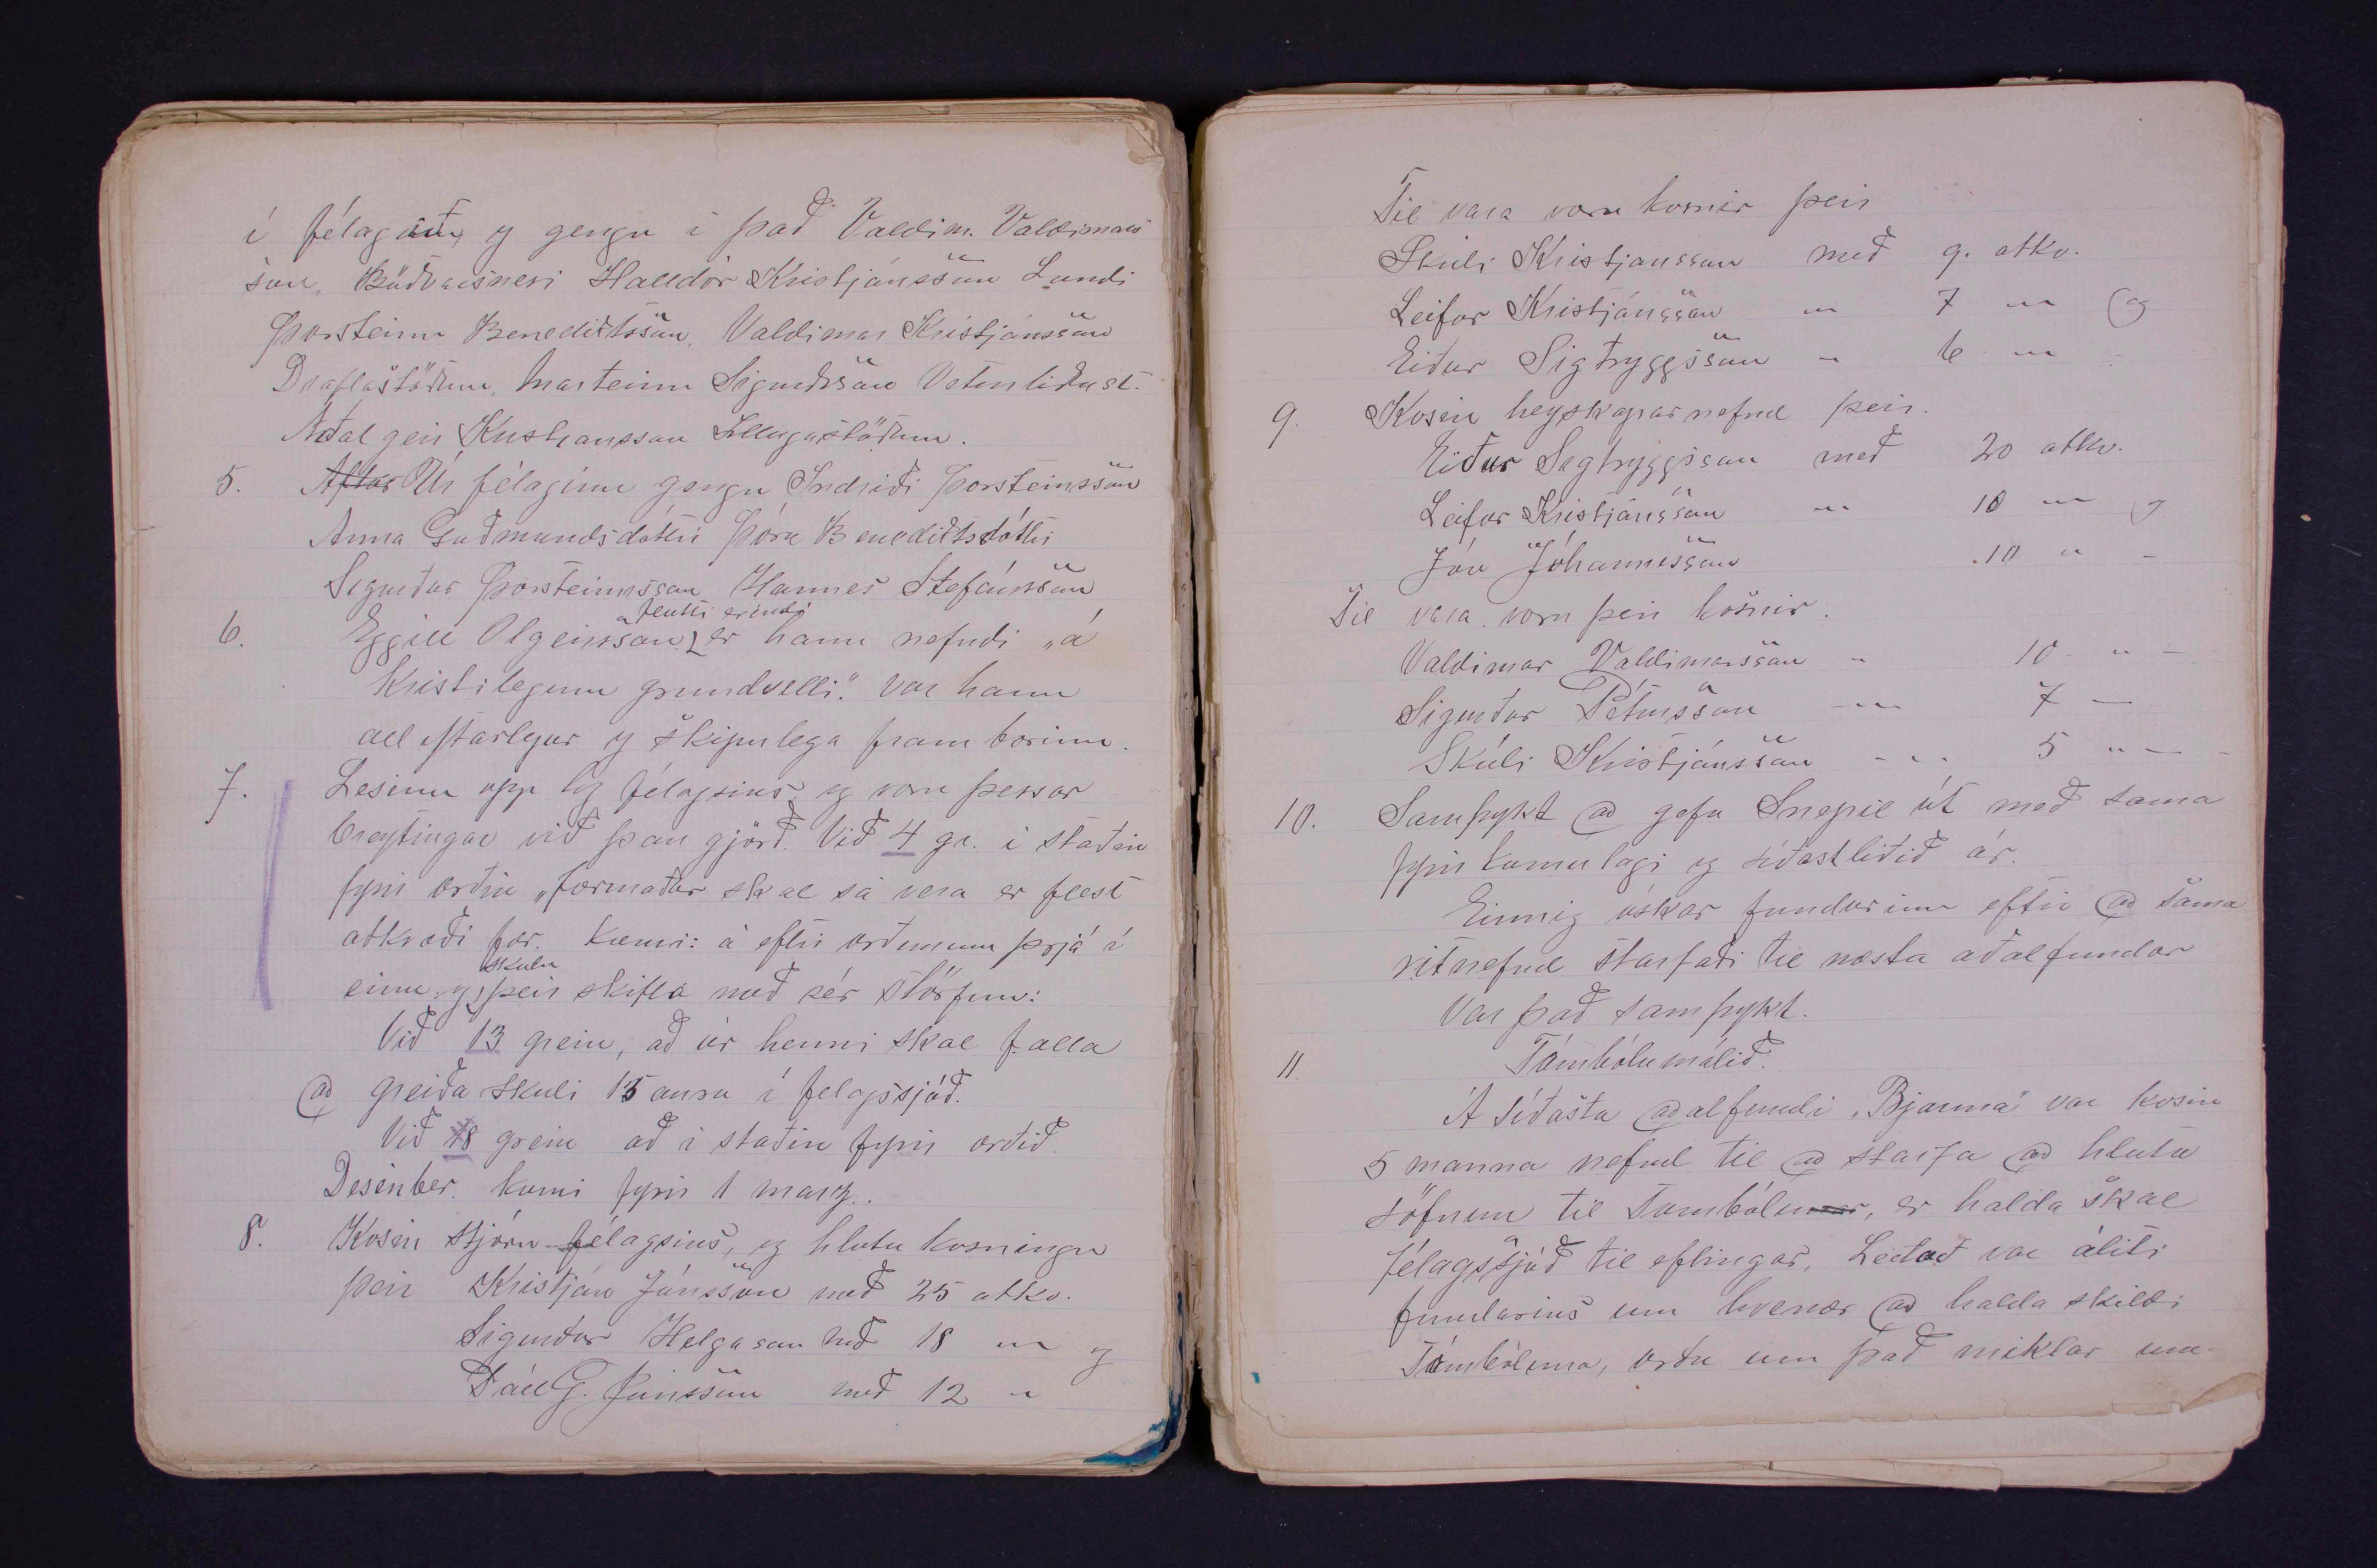 í félagið, og gengu í það Valdim. Valdimars
son, Böðvarsnesi Halldór Kristjánsson Lundi
Þorsteinn Benediktsson, Valdimar Kristjánsson
Draflastöðum, Marteinn Sigurðsson Veturliðast.
Aðalgeir Kristjansson Illugastöðum.
5. Aftar Úr félaginu gengu Indriði Þorsteinsson
Anna Guðmundsdóttir Þóra Benediktsdóttir
Sigurður Þorsteinsson Hannes Stefánsson
flutti erindi
6. Eggill Olgeirsson er hann nefndi „á
Kristilegum grundvelli". var hann
all ýtarlegur og skipulega fram borinn.
7. Lesinn upp lög félagsins og voru þessar
breytingar við þau gjörð. Við 4 gr. í staðin
fyrir orðin „formaður skal sá vera er flest
atkvæði fær. kemi: á eftir orðunum þrjá í
skulu
einu og þeir skifta með sér störfum:
Við 13 grein, að úr henni skal falla
að greiða skuli 15 aura í felagssjóð.
Við 18 grein að í staðin fyrir orðið
Desenber. komi fyrir 1 marz.
8. Kosin stjórn félagsins, og hlutu kosningu
þeir Kristján Jónsson með 25 atkv.
Sigurður Helgason með 18 " og
Páll G. Jónsson með 12 "
Til vara voru kosnir þeir
Skúli Kristjánsson með 9. atkv.
Leifur Kristjánsson " 7 " og
Eiður Sigtryggsson " 6 " -
9. Kosin heyskapar nefnd þeir.
Eiður Sigtryggsson með 20 atkv.
Leifur Kristjánsson " 10 " og
Jón Jóhannesson .10 " -
Til vara voru þeir kosnir.
Valdimar Valdimarsson " 10 " -
Sigurður Pétursson -" 7 -
Skúli Kristjánsson - " 5 " -
10. Samþykt að gefa Snepil út með sama
fyrirkomulagi og síðastliðið ár.
Einnig óskar fundurinn eftir að sama
ritnefnd starfaði til næsta aðalfundar
Var það samþykt.
11. Tómbólumálið.
Á síðasta aðalfundi „Bjarma" var kosin
5 manna nefnd til að starfa að hluta
söfnun til Tombólunnar, er halda skal
félagssjóð til eflingar. Leitað var áliti
fundarins um hvenær að halda skildi
Tómbóluna, urðu um það miklar um-